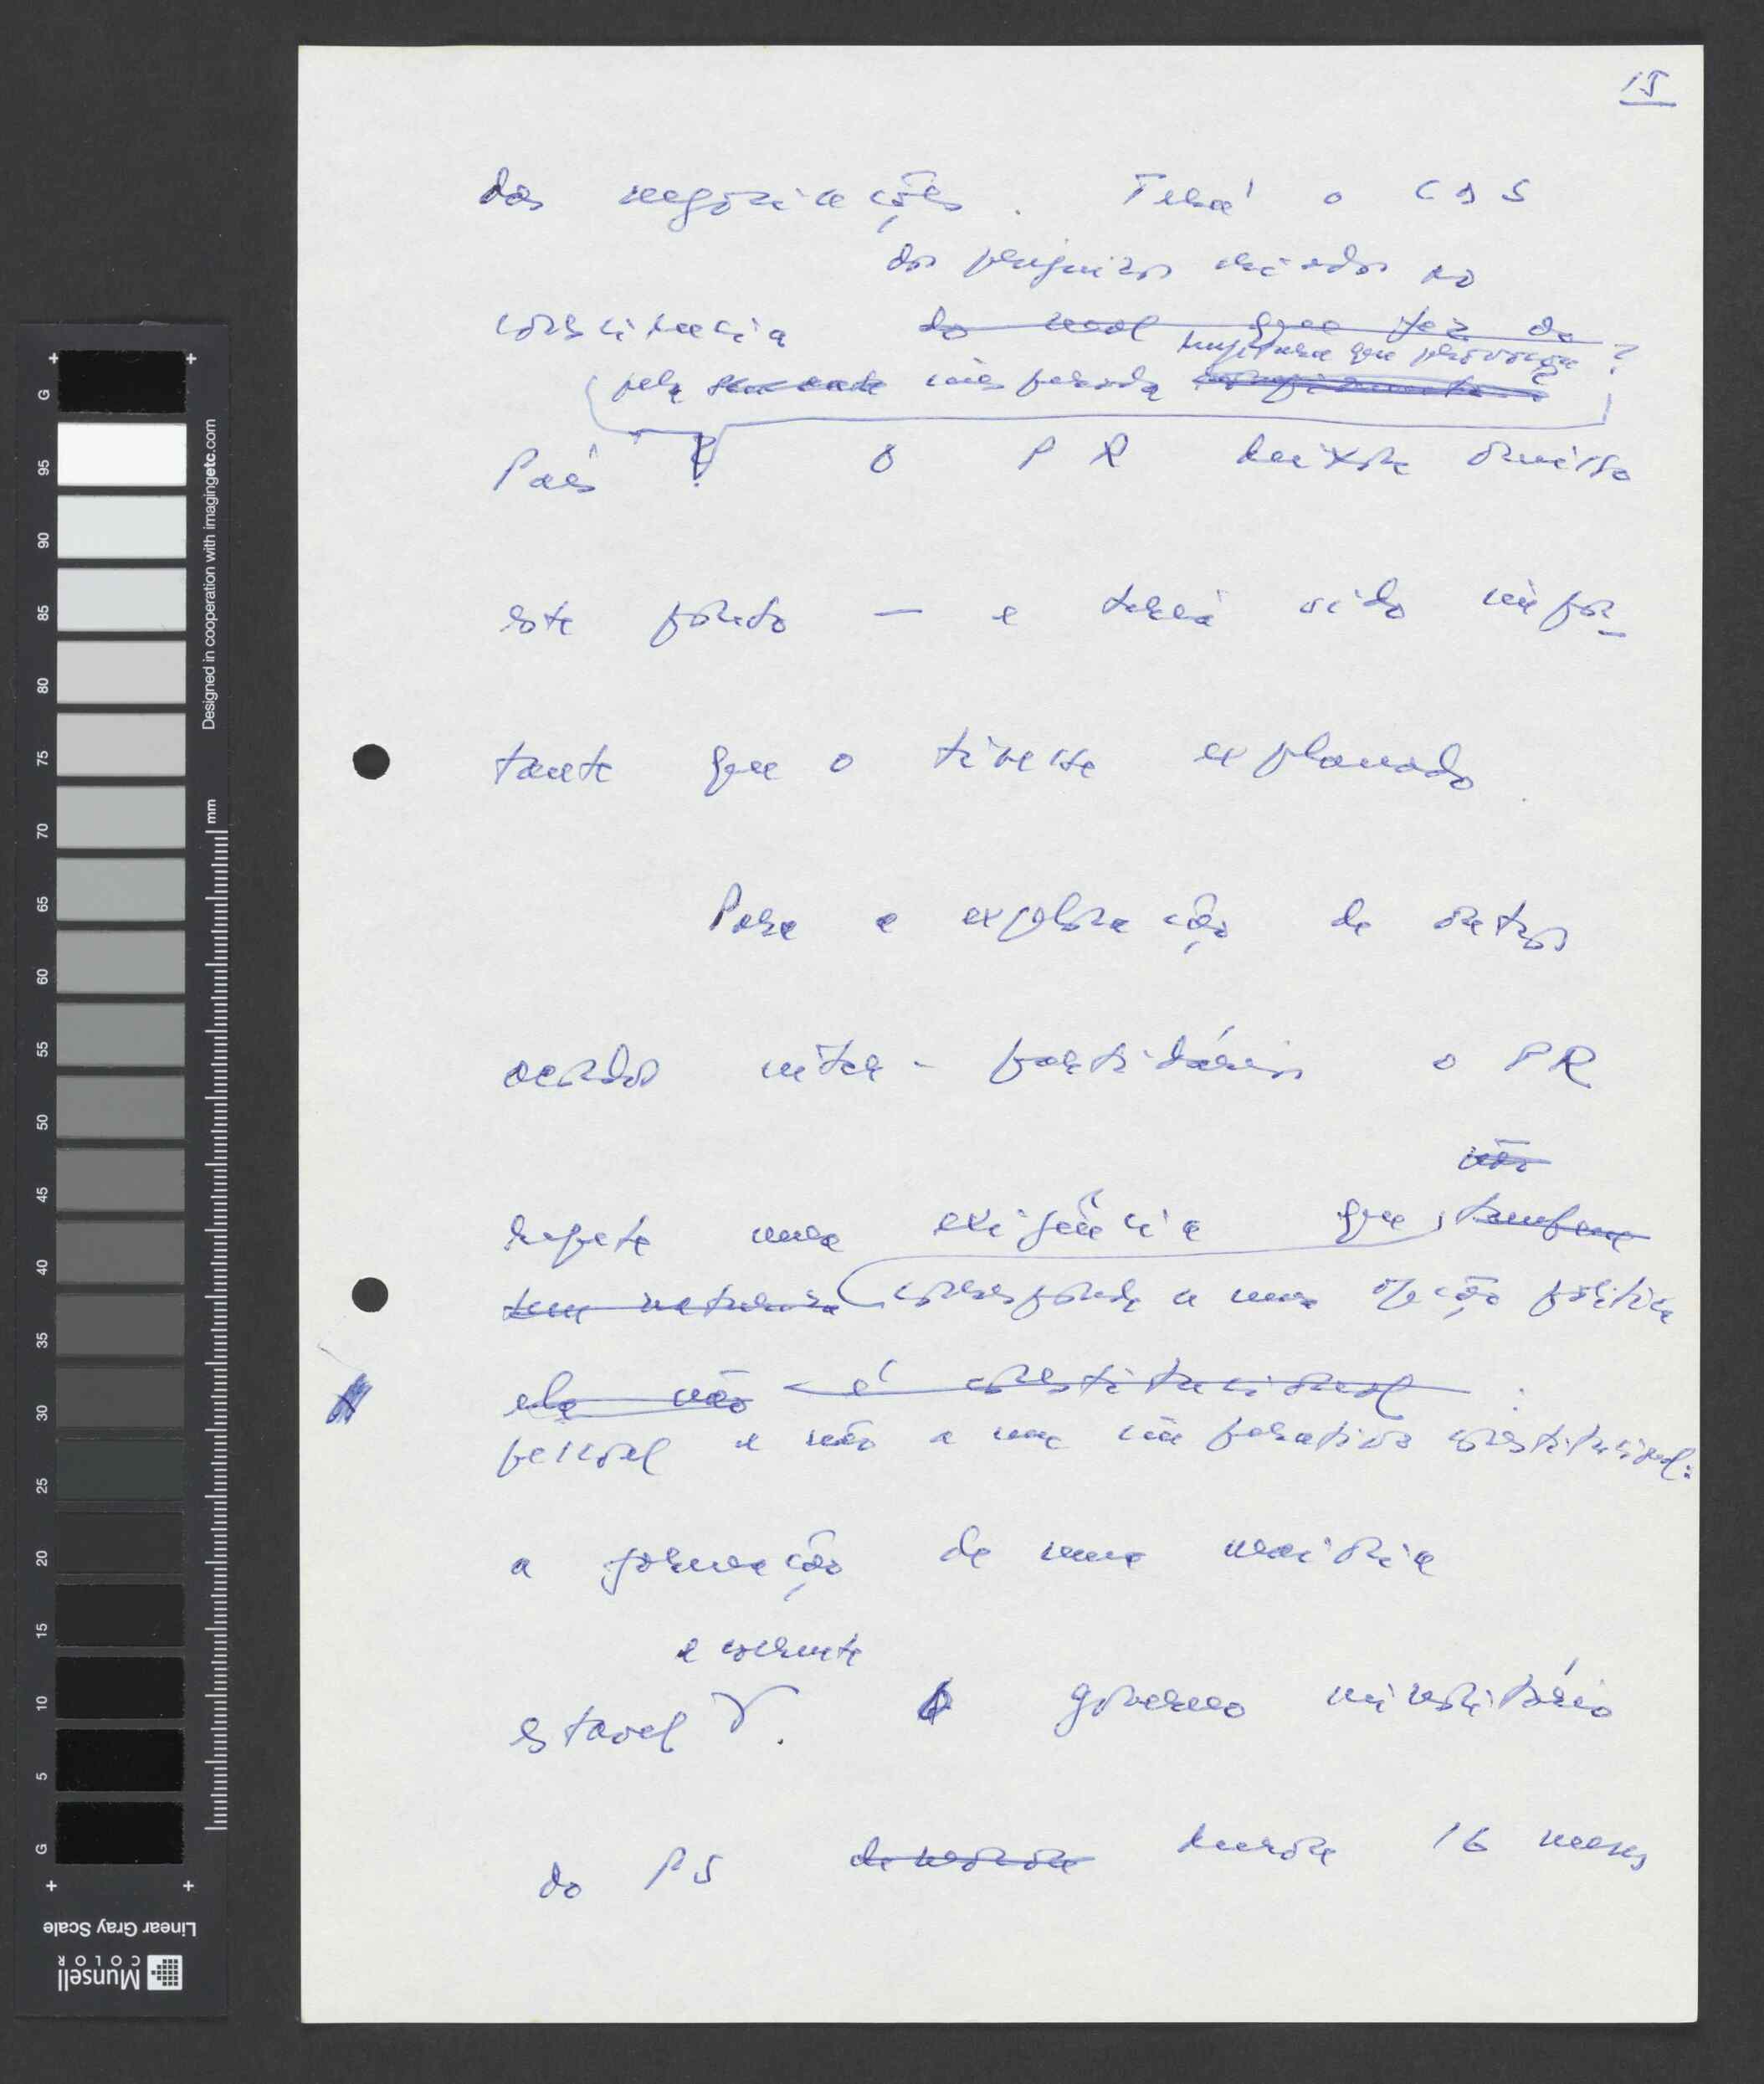 15
das negociações. Terá o CDS
dos prejuízos causados ao
consciência ~~do mal que fez ao~~
ruptura que provocou ?
pela inesperada
País ? O PR deixou omisso
este ponto — e teria sido impor-
tante que o tivesse explanado.
Para a exploração de outros
acordos inter-partidários o PR
~~não~~
repete uma exigência que,
~~tem natureza~~ corresponde a uma opção política
~~ela não é constitucional~~ :
pessoal e não a um imperativo constitucional:
a formação de uma maioria
e coerente
estavel . O governo minoritário
do PS durou 16 meses
G 95 90 85 80 75 70 65 60 55 50 45 40 35 30 25 20 15 10 5 G
mm
Designed in cooperation with imagingetc.com
Linear Gray Scale
Munsell
COLOR